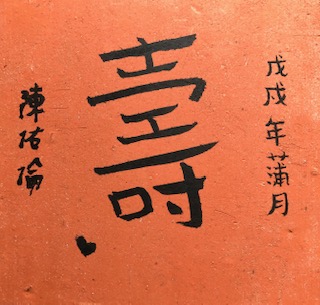 戊戌年蒲月
壽
陳佑綸